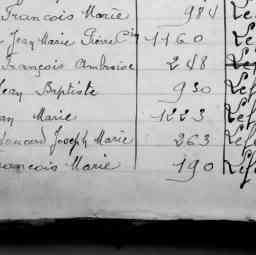 François Marie 984 Lef
Jean Marie Pierre Cin 1160 Lef
François Ambroise 248 Lef
Jean Baptiste 930 Lef
Jean Marie 1223 Lef
Édouard Joseph Marie 263 Lef
François Marie 190 Lef